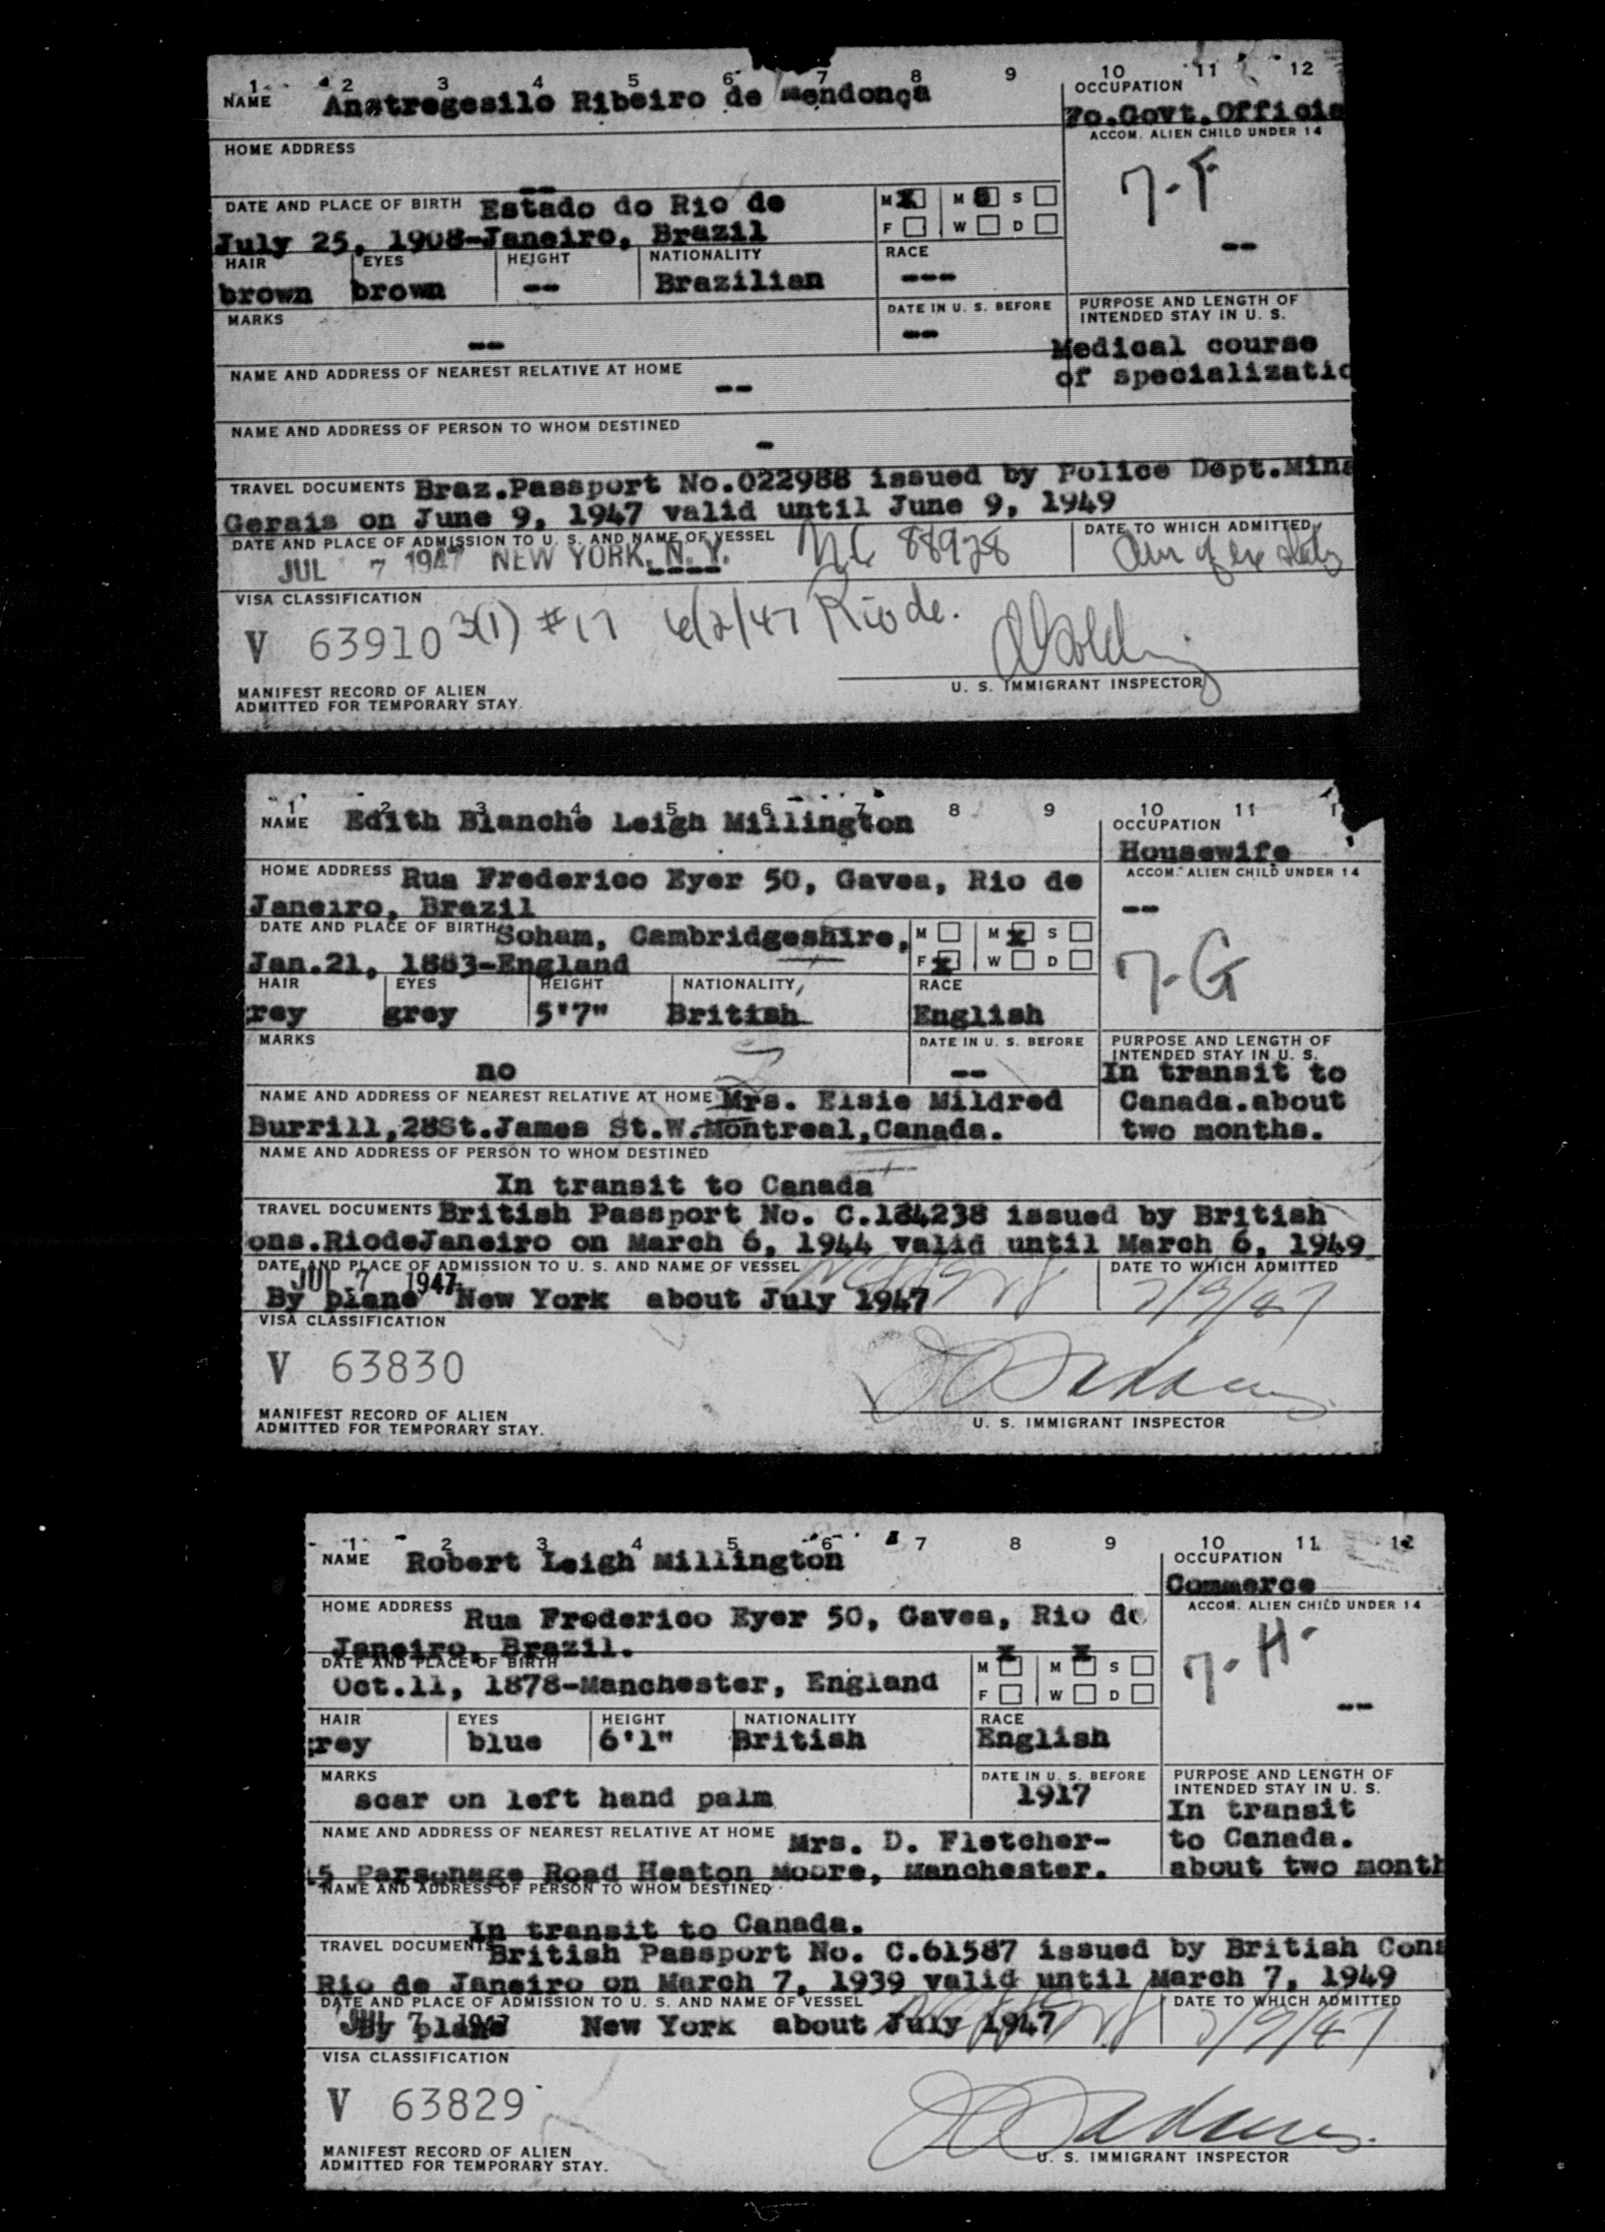 1 2 3 4 5 6 7 8 9 10 11 12
NAME Anatregesilo Ribeiro de Mendonça
OCCUPATION
Fo.Govt.Officia
HOME ADDRESS
--
ACCOM. ALIEN CHILD UNDER 14
7-F
--
DATE AND PLACE OF BIRTH Estado do Rio de
July 25, 1908-Janeiro, Brazil
M X M S
F W D
HAIR EYES HEIGHT NATIONALITY RACE
brown brown -- Brazilian ---
MARKS
--
DATE IN U. S. BEFORE
--
PURPOSE AND LENGTH OF
INTENDED STAY IN U. S.
Medical course
of specializatio
NAME AND ADDRESS OF NEAREST RELATIVE AT HOME
--
NAME AND ADDRESS OF PERSON TO WHOM DESTINED
-
TRAVEL DOCUMENTS Braz.Passport No.022988 issued by Police Dept.Mina
Gerais on June 9, 1947 valid until June 9, 1949
DATE AND PLACE OF ADMISSION TO U. S. AND NAME OF VESSEL
JUL 7 1947 NEW YORK, N. Y. NC 88928
DATE TO WHICH ADMITTED
VISA CLASSIFICATION
V 63910 3(1) #17 6/2/47 Rio de.
U. S. IMMIGRANT INSPECTOR
MANIFEST RECORD OF ALIEN
ADMITTED FOR TEMPORARY STAY.
1 2 3 4 5 6 7 8 9 10 11 1
NAME Edith Blanche Leigh Millington
OCCUPATION
Housewife
HOME ADDRESS Rua Frederico Eyer 50, Gavea, Rio de
Janeiro, Brazil
ACCOM. ALIEN CHILD UNDER 14
--
7-G
DATE AND PLACE OF BIRTH Soham, Cambridgeshire,
Jan.21, 1883-England
M M X S
F X W D
HAIR EYES HEIGHT NATIONALITY RACE
rey grey 5'7" British English
MARKS
no
DATE IN U. S. BEFORE
--
PURPOSE AND LENGTH OF
INTENDED STAY IN U. S.
In transit to
Canada.about
two months.
NAME AND ADDRESS OF NEAREST RELATIVE AT HOME Mrs. Elsie Mildred
Burrill,28St.James St.W.Montreal,Canada.
NAME AND ADDRESS OF PERSON TO WHOM DESTINED
In transit to Canada
TRAVEL DOCUMENTS British Passport No. C.184238 issued by British
ons.RiodeJaneiro on March 6, 1944 valid until March 6, 1949
DATE AND PLACE OF ADMISSION TO U. S. AND NAME OF VESSEL
JUL 7 1947
By plane New York about July 1947
DATE TO WHICH ADMITTED
7/9/47
VISA CLASSIFICATION
V 63830
U. S. IMMIGRANT INSPECTOR
MANIFEST RECORD OF ALIEN
ADMITTED FOR TEMPORARY STAY.
1 2 3 4 5 6 7 8 9 10 11 12
NAME Robert Leigh Millington
OCCUPATION
Commerce
HOME ADDRESS Rua Frederico Eyer 50, Gavea, Rio de
Janeiro, Brazil.
ACCOM. ALIEN CHILD UNDER 14
7-H-
--
DATE AND PLACE OF BIRTH
Oct.11, 1878-Manchester, England
M X M X S
F W D
HAIR EYES HEIGHT NATIONALITY RACE
rey blue 6'1" British English
MARKS
scar on left hand palm
DATE IN U. S. BEFORE
1917
PURPOSE AND LENGTH OF
INTENDED STAY IN U. S.
In transit
to Canada.
about two month
NAME AND ADDRESS OF NEAREST RELATIVE AT HOME Mrs. D. Fletcher-
15 Parsonage Road Heaton Moore, Manchester.
NAME AND ADDRESS OF PERSON TO WHOM DESTINED
In transit to Canada.
TRAVEL DOCUMENTS British Passport No. C.61587 issued by British Cons
Rio de Janeiro on March 7, 1939 valid until March 7, 1949
DATE AND PLACE OF ADMISSION TO U. S. AND NAME OF VESSEL
JUL 7 1947
By plane New York about July 1947
DATE TO WHICH ADMITTED
7/9/47
VISA CLASSIFICATION
V 63829
U. S. IMMIGRANT INSPECTOR
MANIFEST RECORD OF ALIEN
ADMITTED FOR TEMPORARY STAY.